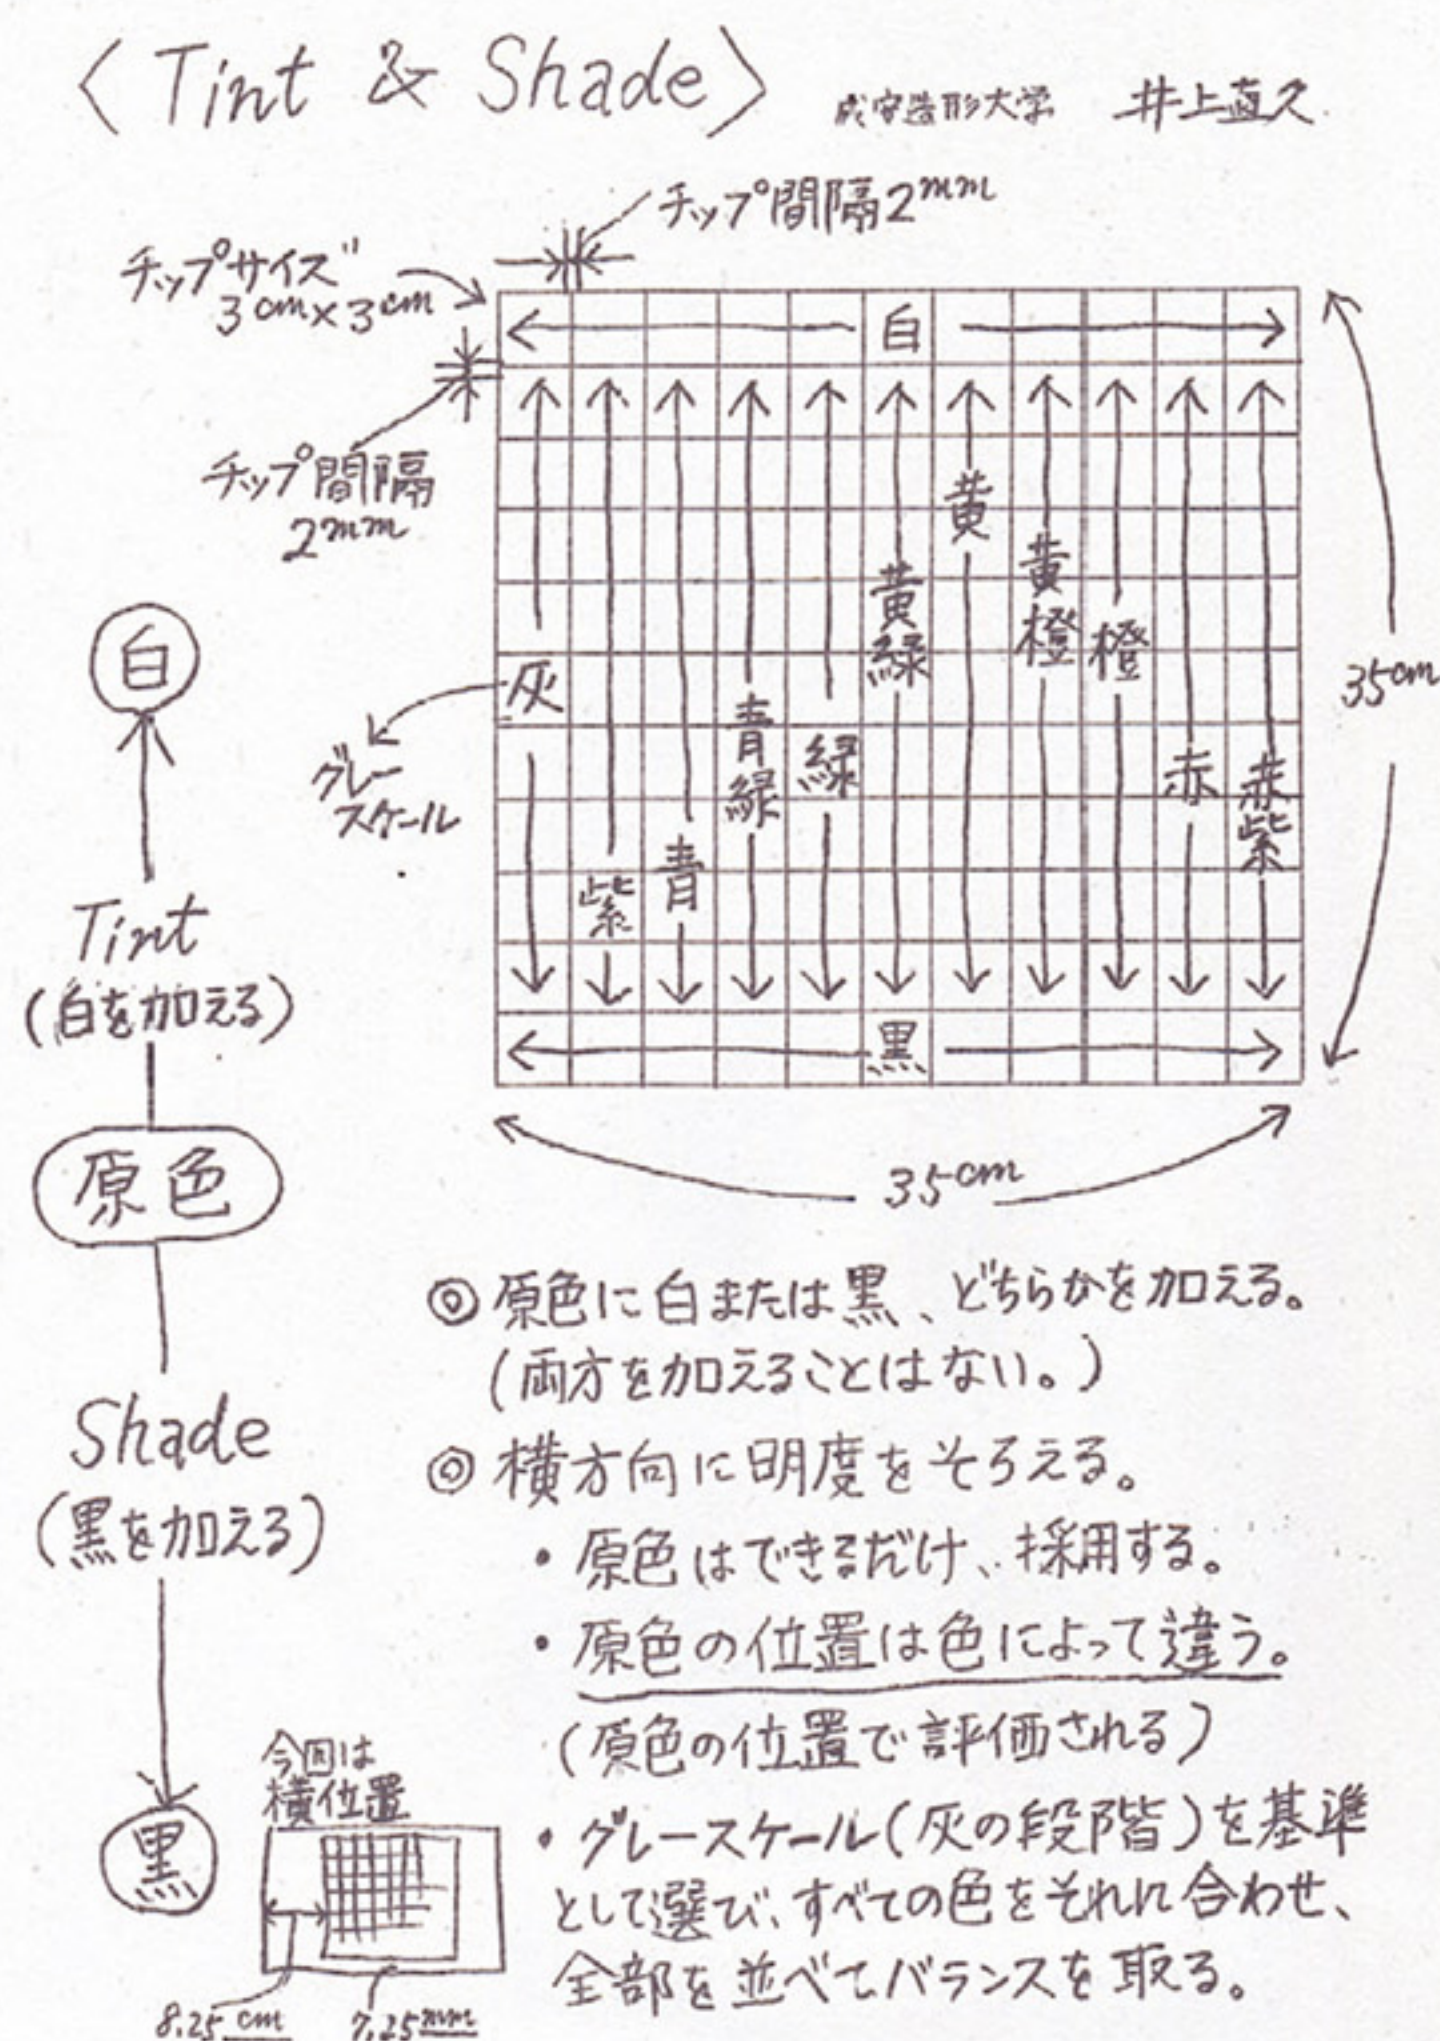 〈Tint & Shade〉 成安造形大学 井上直久
チップ間隔2mm
チップサイズ
3cm×3cm
チップ間隔
2mm
白
灰
紫
青
青緑
緑
黄緑
黄
黄橙
橙
赤
赤紫
黒
グレー
スケール
35cm
35cm
白
Tint
(白を加える)
原色
Shade
(黒を加える)
黒
◎原色に白または黒、どちらかを加える。
(両方を加えることはない。)
◎横方向に明度をそろえる。
・原色はできるだけ、採用する。
・原色の位置は色によって違う。
(原色の位置で評価される)
・グレースケール(灰の段階)を基準
として選び、すべての色をそれに合わせ、
全部を並べてバランスを取る。
今回は
横位置
8.25cm
7.25mm